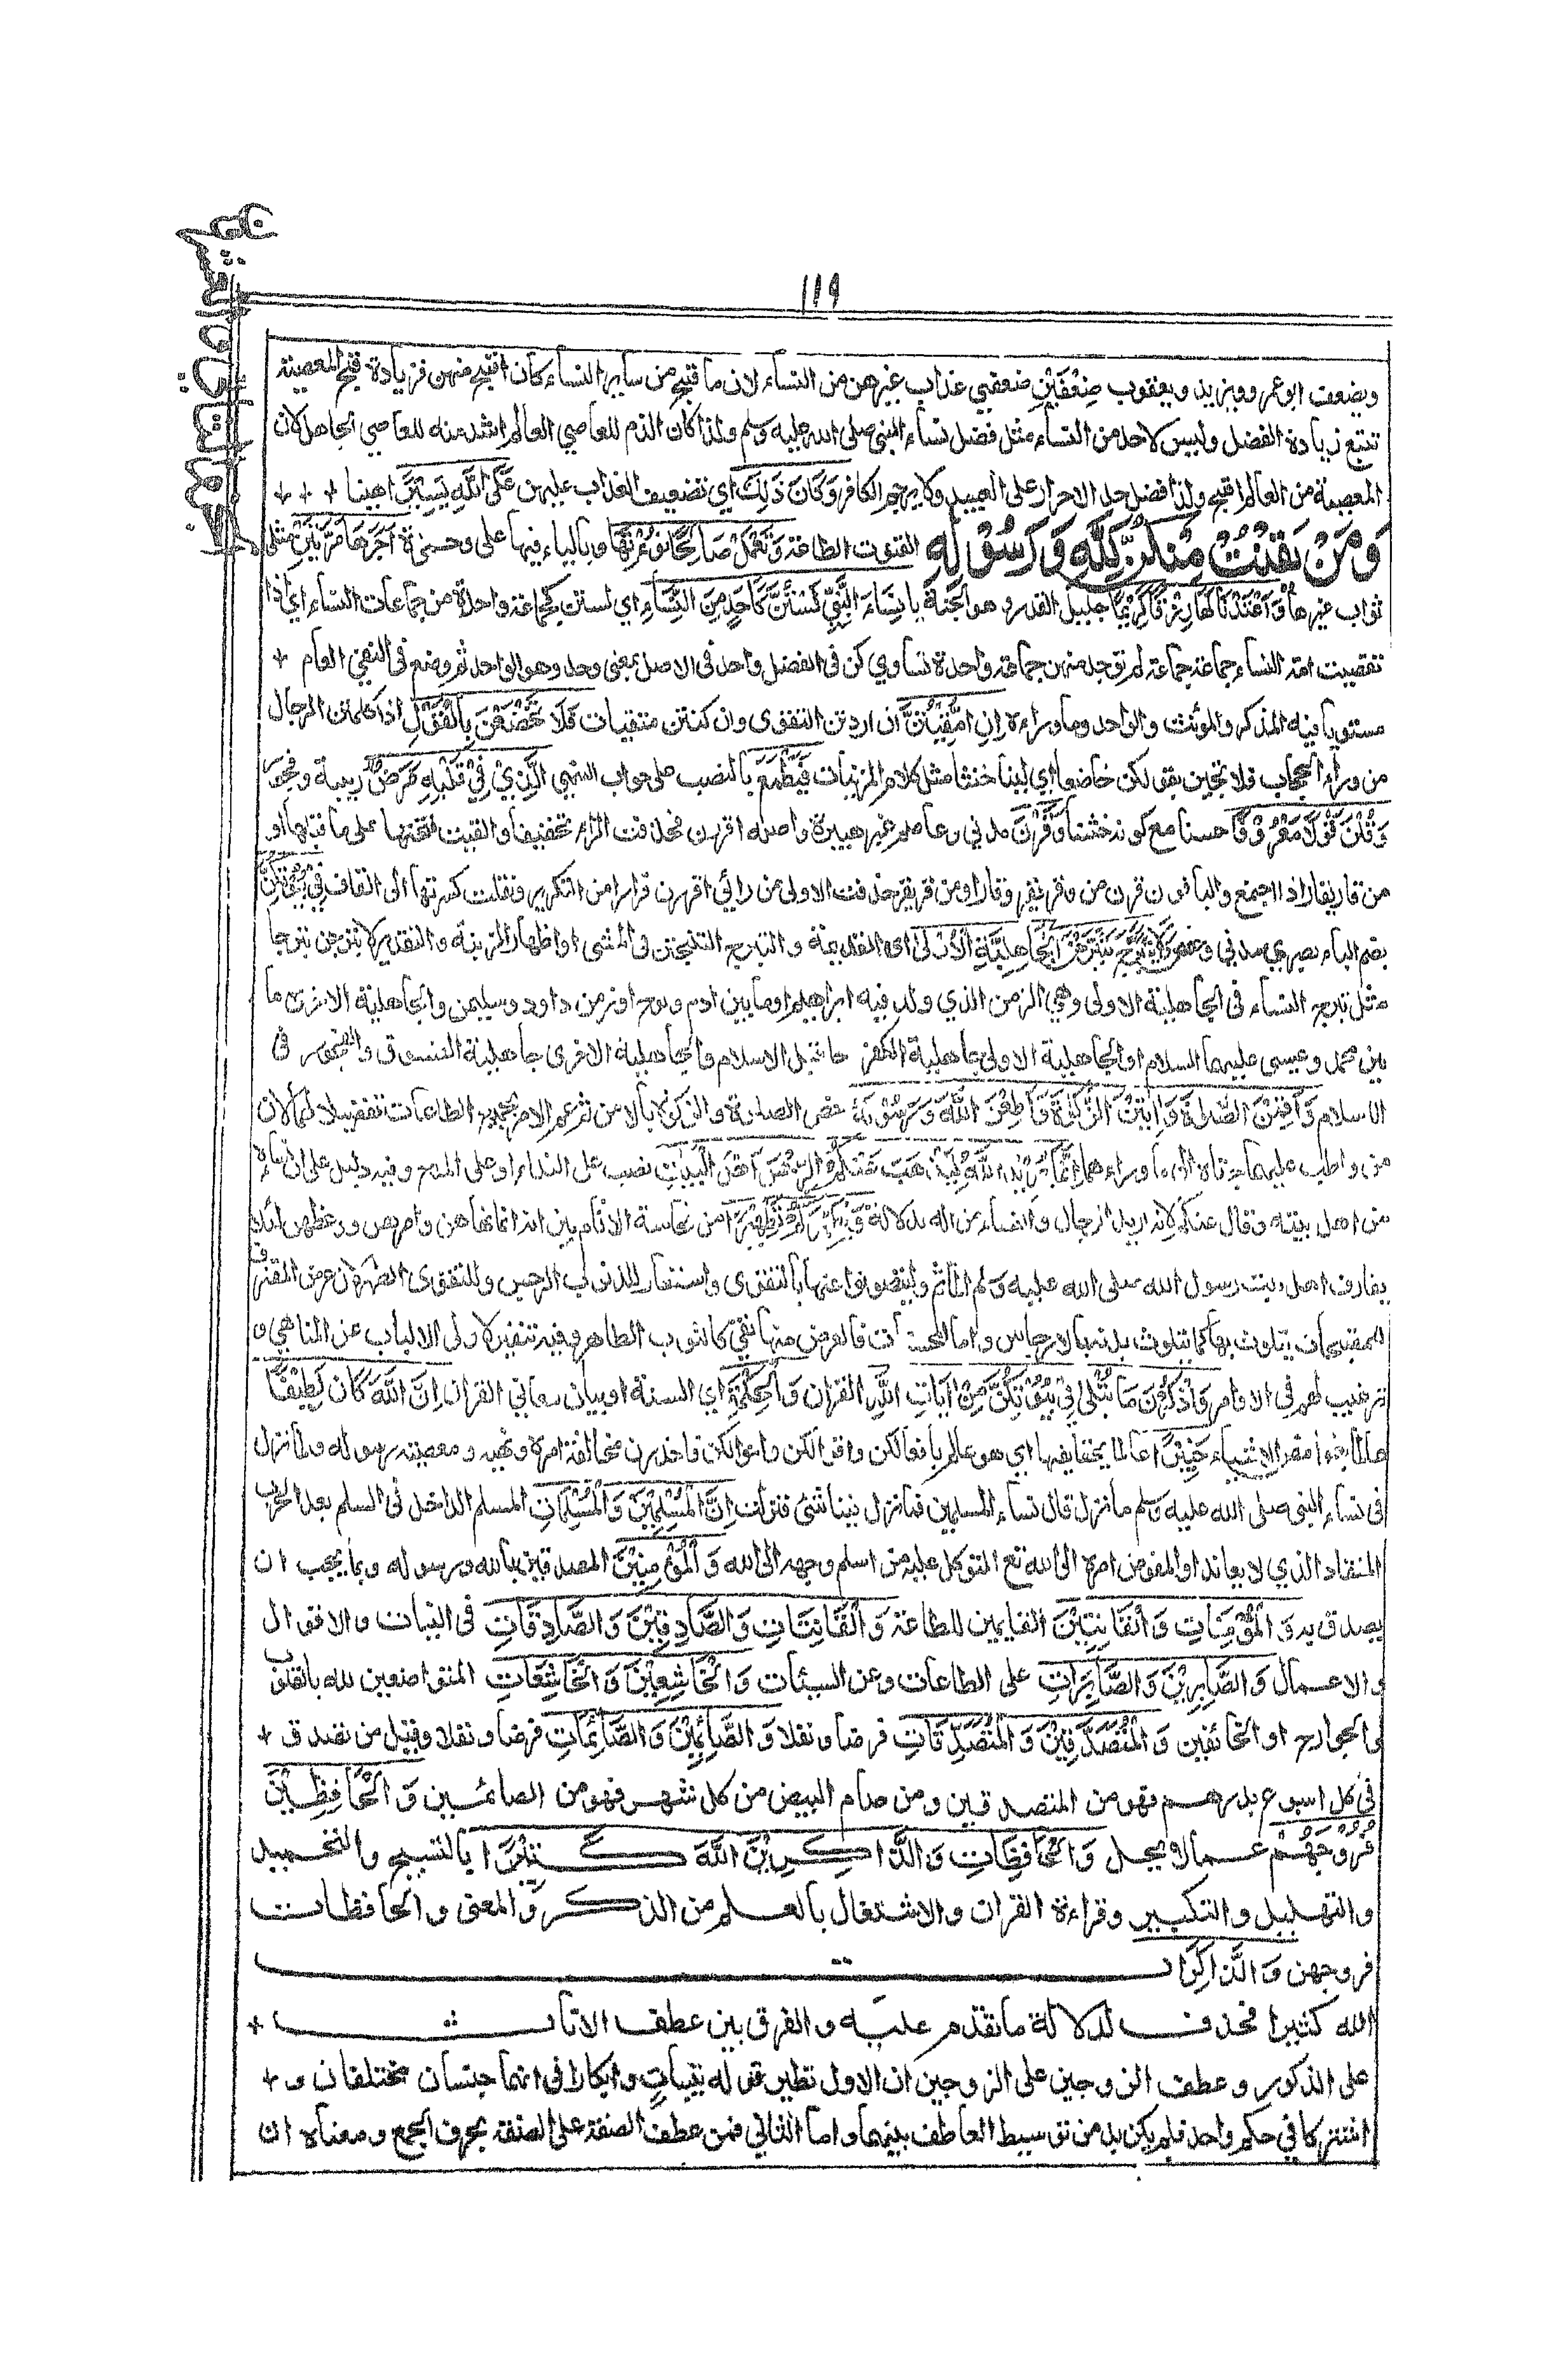 ١١٩
الجزء الثاني والعشرون
ويضعف ابو عمرو ويزيد ويعقوب ضِعْفَيْنِ ضعفي عذاب غيرهن من النساء لان ما قبح من ساير النساء كان اقبح منهن فزيادة قبح المعصية
تتبع زيادة الفضل وليس لاحد من النساء مثل فضل نساء النبي صلى الله عليه وسلم ولذا كان الذم للعاصي العالم اشد منه للعاصي الجاهل لان
المعصية من العالم اقبح ولذا فضل حد الاحرار على العبيد ولا يرجم الكافر وَكَانَ ذَلِكَ اي تضعيف العذاب عليهن عَلَى اللَّهِ يَسِيْرًا هينا
وَمَنْ يَقْنُتْ مِنْكُنَّ لِلَّهِ وَرَسُوْلِهِ القنوت الطاعة وَتَعْمَلْ صَالِحًا نُؤْتِهَا وبالياء فيهما على وحمزة اَجْرَهَا مَرَّتَيْنِ مثلى
ثواب غيرها وَاَعْتَدْنَا لَهَا رِزْقًا كَرِيْمًا جليل القدر وهو الجنة يَا نِسَاءَ النَّبِيِّ لَسْتُنَّ كَاَحَدٍ مِنَ النِّسَاءِ اي لستن كجماعة واحدة من جماعات النساء اي اذا
تقصيت امة النساء جماعة جماعة لم توجد منهن جماعة واحدة تساويكن في الفضل واحد في الاصل بمعنى وحد وهو الواحد ثم وضع في النفي العام
مستويا فيه المذكر والمؤنث والواحد وما وراءه اِنِ اتَّقَيْتُنَّ ان اردتن التقوى وان كنتن متقيات فَلَا تَخْضَعْنَ بِالْقَوْلِ اذا كلمتن الرجال
من وراء الحجاب فلا تجئن بقولكن خاضعا اي لينا خنثا مثل كلام المريبات فَيَطْمَعَ بالنصب على جواب النهي الَّذِيْ فِيْ قَلْبِهِ مَرَضٌ ريبة وفجور
وَقُلْنَ قَوْلًا مَعْرُوْفًا حسنا مع كونه خشنا وَقَرْنَ مدني وعاصم غير هبيرة واصله اقررن فحذفت الراء تخفيفا والقيت فتحتها على ما قبلها او
من قار يقار اذا اجتمع والباقون قرن من وقر يقر وقارا او من قر يقر حذفت الاولى من رائي اقررن قرارا من التكرير ونقلت كسرتها الى القاف فِيْ بُيُوْتِكُنَّ
بضم الباء بصري مدني وحفص وَلَا تَبَرَّجْنَ تَبَرُّجَ الْجَاهِلِيَّةِ الْاُوْلَى اى القديمة والتبرج التبختر في المشى او اظهار الزينة والتقدير ولا تبرجن تبرجا
مثل تبرج النساء في الجاهلية الاولى وهي الزمن الذي ولد فيه ابراهيم او ما بين ادم ونوح او زمن داود وسليمن والجاهلية الاخرى ما
بين محمد وعيسى عليهما السلام او الجاهلية الاولى جاهلية الكفر ما قبل الاسلام والجاهلية الاخرى جاهلية الفسوق والفجور في
الاسلام وَاَقِمْنَ الصَّلٰوةَ وَاٰتِيْنَ الزَّكٰوةَ وَاَطِعْنَ اللَّهَ وَرَسُوْلَهُ خص الصلوة والزكوة بالامر ثم عم الامر بجميع الطاعات تفضيلا لهما لان
من واظب عليهما جرتاه الى ما وراءهما اِنَّمَا يُرِيْدُ اللَّهُ لِيُذْهِبَ عَنْكُمُ الرِّجْسَ اَهْلَ الْبَيْتِ نصب على النداء او على المدح وفيه دليل على ان نساءه
من اهل بيته وقال عنكم لانه اريد الرجال والنساء من اله بدلالة وَيُطَهِّرَكُمْ تَطْهِيْرًا من نجاسة الاثام بين انه انما نهاهن وامرهن ووعظهن لئلا
يقارف اهل بيت رسول الله صلى الله عليه وسلم المآثم وليتصونوا عنها بالتقوى واستعار للذنوب الرجس وللتقوى الطهر لان عرض المقترف
للمقبحات يتلوث بها كما يتلوث بدنه بالارجاس واما المحسنات فالعرض منها نقي كالثوب الطاهر وفيه تنفير لاولى الالباب عن المناهي و
ترغيب لهم في الاوامر وَاذْكُرْنَ مَا يُتْلَى فِيْ بُيُوْتِكُنَّ مِنْ اٰيَاتِ اللَّهِ القران وَالْحِكْمَةِ اي السنة او بيان معاني القران اِنَّ اللَّهَ كَانَ لَطِيْفًا
عالما بغوامض الاشياء خَبِيْرًا عالما بحقايقها اي هو عالم بافعالكن واقوالكن واحوالكن فاحذرن مخالفة امره ونهيه ومعصية رسوله ولما نزل
في نساء النبي صلى الله عليه وسلم ما نزل قال نساء المسلمين فما نزل فينا شئ فنزلت اِنَّ الْمُسْلِمِيْنَ وَالْمُسْلِمَاتِ المسلم الداخل في السلم بعد الحرب
المنقاد الذي لا يعاند او المفوض امره الى الله تع المتوكل عليه من اسلم وجهه الى الله وَالْمُؤْمِنِيْنَ المصدقين بالله ورسوله وبما يجب ان
يصدق به وَالْمُؤْمِنَاتِ وَالْقَانِتِيْنَ القايمين للطاعة وَالْقَانِتَاتِ وَالصَّادِقِيْنَ وَالصَّادِقَاتِ في النيات والاقوال
والاعمال وَالصَّابِرِيْنَ وَالصَّابِرَاتِ على الطاعات وعن السيئات وَالْخَاشِعِيْنَ وَالْخَاشِعَاتِ المتواضعين لله بالقلوب
والجوارح او الخائفين وَالْمُتَصَدِّقِيْنَ وَالْمُتَصَدِّقَاتِ فرضا ونفلا وَالصَّائِمِيْنَ وَالصَّائِمَاتِ فرضا ونفلا وقيل من تصدق
في كل اسبوع بدرهم فهو من المتصدقين ومن صام البيض من كل شهر فهو من الصائمين وَالْحَافِظِيْنَ
فُرُوْجَهُمْ عما لا يحل وَالْحَافِظَاتِ وَالذَّاكِرِيْنَ اللَّهَ كَثِيْرًا بالتسبيح والتحميد
والتهليل والتكبير وقراءة القران والاشتغال بالعلم من الذكر والمعنى والحافظات
فروجهن وَالذَّاكِرَات
الله كثيرا فحذف لدلالة ما تقدم عليه والفرق بين عطف الاناث
على الذكور وعطف الزوجين على الزوجين ان الاول نظير قوله ثيبات وابكارا في انهما جنسان مختلفان و
اشتركا في حكم واحد فلم يكن بد من توسيط العاطف بينهما واما الثاني فمن عطف الصفة على الصفة بحرف الجمع ومعناه ان